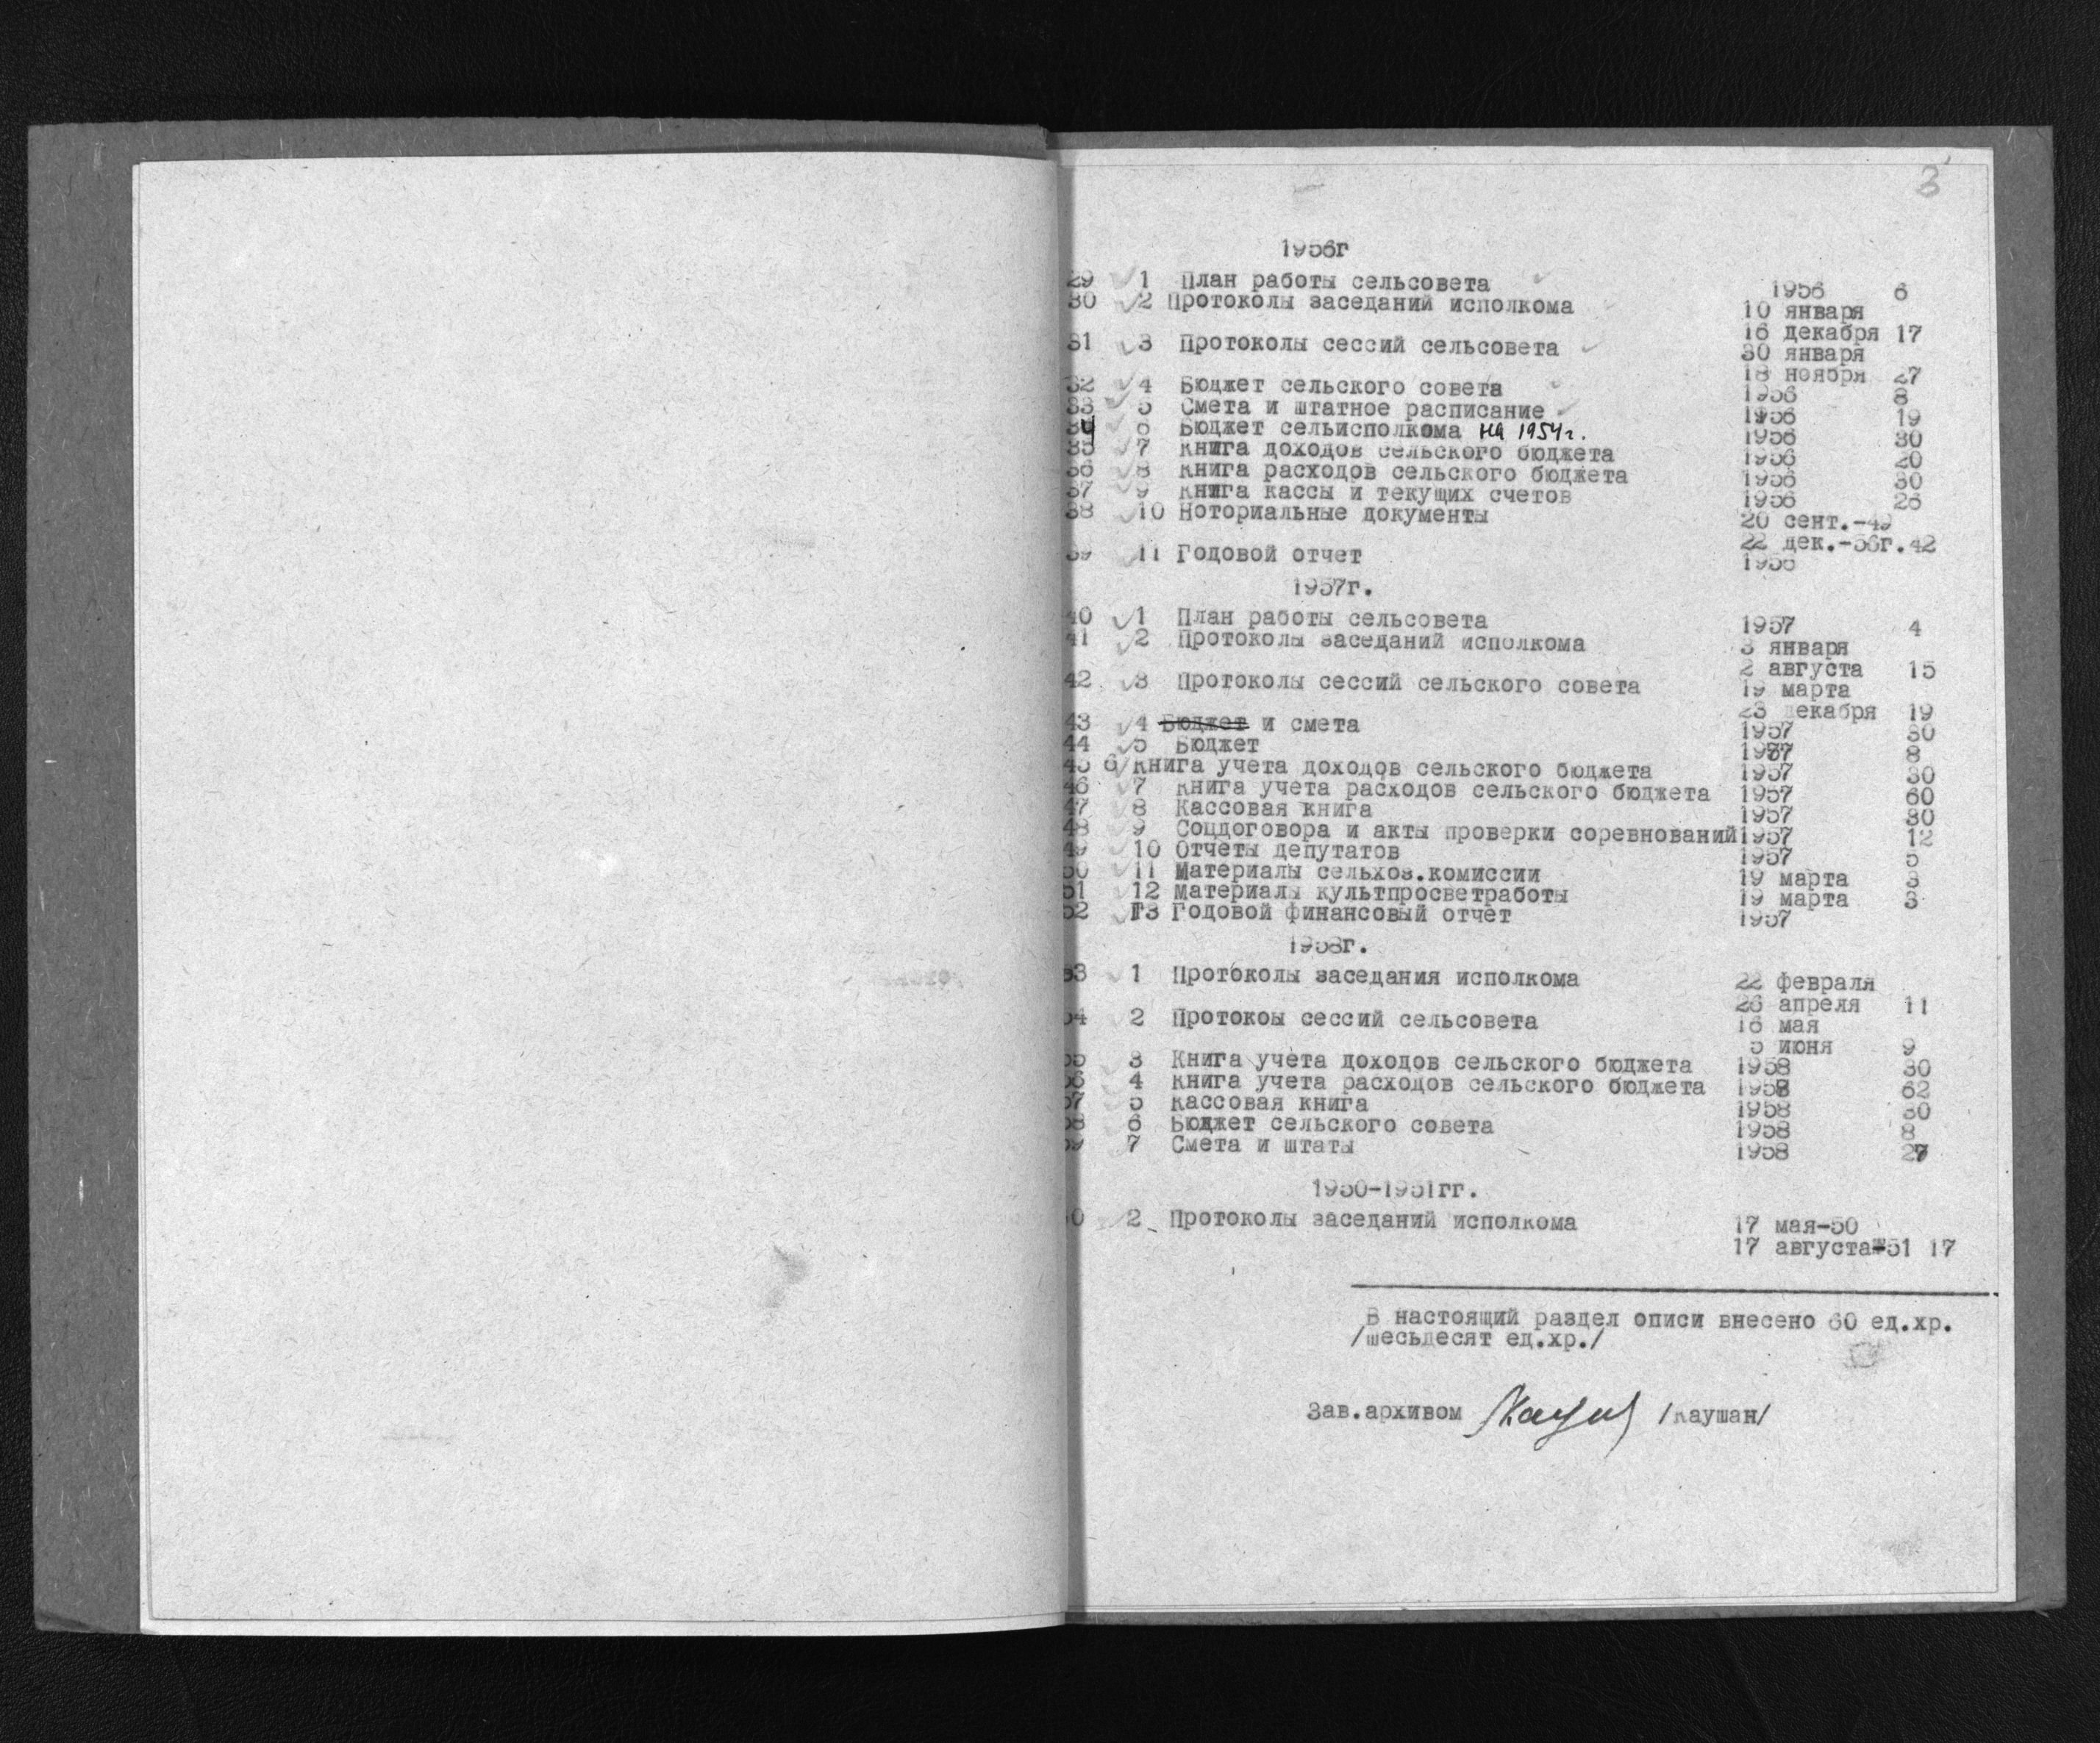 3
1956г
29 1 План работы сельсовета 1956 6
30 2 Протоколы заседаний исполкома 10 января
16 декабря 17
31 3 Протоколы сессий сельсовета 30 января
18 ноября 27
32 4 Бюджет сельского совета 1956 8
33 5 Смета и штатное расписание 1956 19
34 6 Бюджет сельисполкома на 1954г. 1956 30
35 7 Книга доходов сельского бюджета 1956 20
36 8 Книга расходов сельского бюджета 1956 30
37 9 Книга кассы и текущих счетов 1956 26
38 10 Ноториальные документы 20 сент.-49
22 дек.-56г.42
39 11 Годовой отчет 1956
1957г.
40 1 План работы сельсовета 1957 4
41 2 Протоколы заседаний исполкома 3 января
2 августа 15
42 3 Протоколы сессий сельского совета 19 марта
23 декабря 19
43 4 Бюджет и смета 1957 30
44 5 Бюджет 1957 8
45 6 Книга учета доходов сельского бюджета 1957 30
46 7 Книга учета расходов сельского бюджета 1957 60
47 8 Кассовая книга 1957 30
48 9 Соцдоговора и акты проверки соревнований 1957 12
49 10 Отчеты депутатов 1957 5
50 11 Материалы сельхоз.комиссии 19 марта 3
51 12 Материалы культпросветработы 19 марта 3
52 13 Годовой финансовый отчет 1957
1958г.
53 1 Протоколы заседания исполкома 22 февраля
26 апреля 11
54 2 Протокоы сессий сельсовета 16 мая
5 июня 9
55 3 Книга учета доходов сельского бюджета 1958 30
56 4 Книга учета расходов сельского бюджета 1958 62
57 5 Кассовая книга 1958 30
58 6 Бюджет сельского совета 1958 8
59 7 Смета и штаты 1958 27
1950-1951гг.
60 2 Протоколы заседаний исполкома 17 мая-50
17 августа-51 17
В настоящий раздел описи внесено 60 ед.хр.
/шесьдесят ед.хр./
Зав.архивом /Каушан/